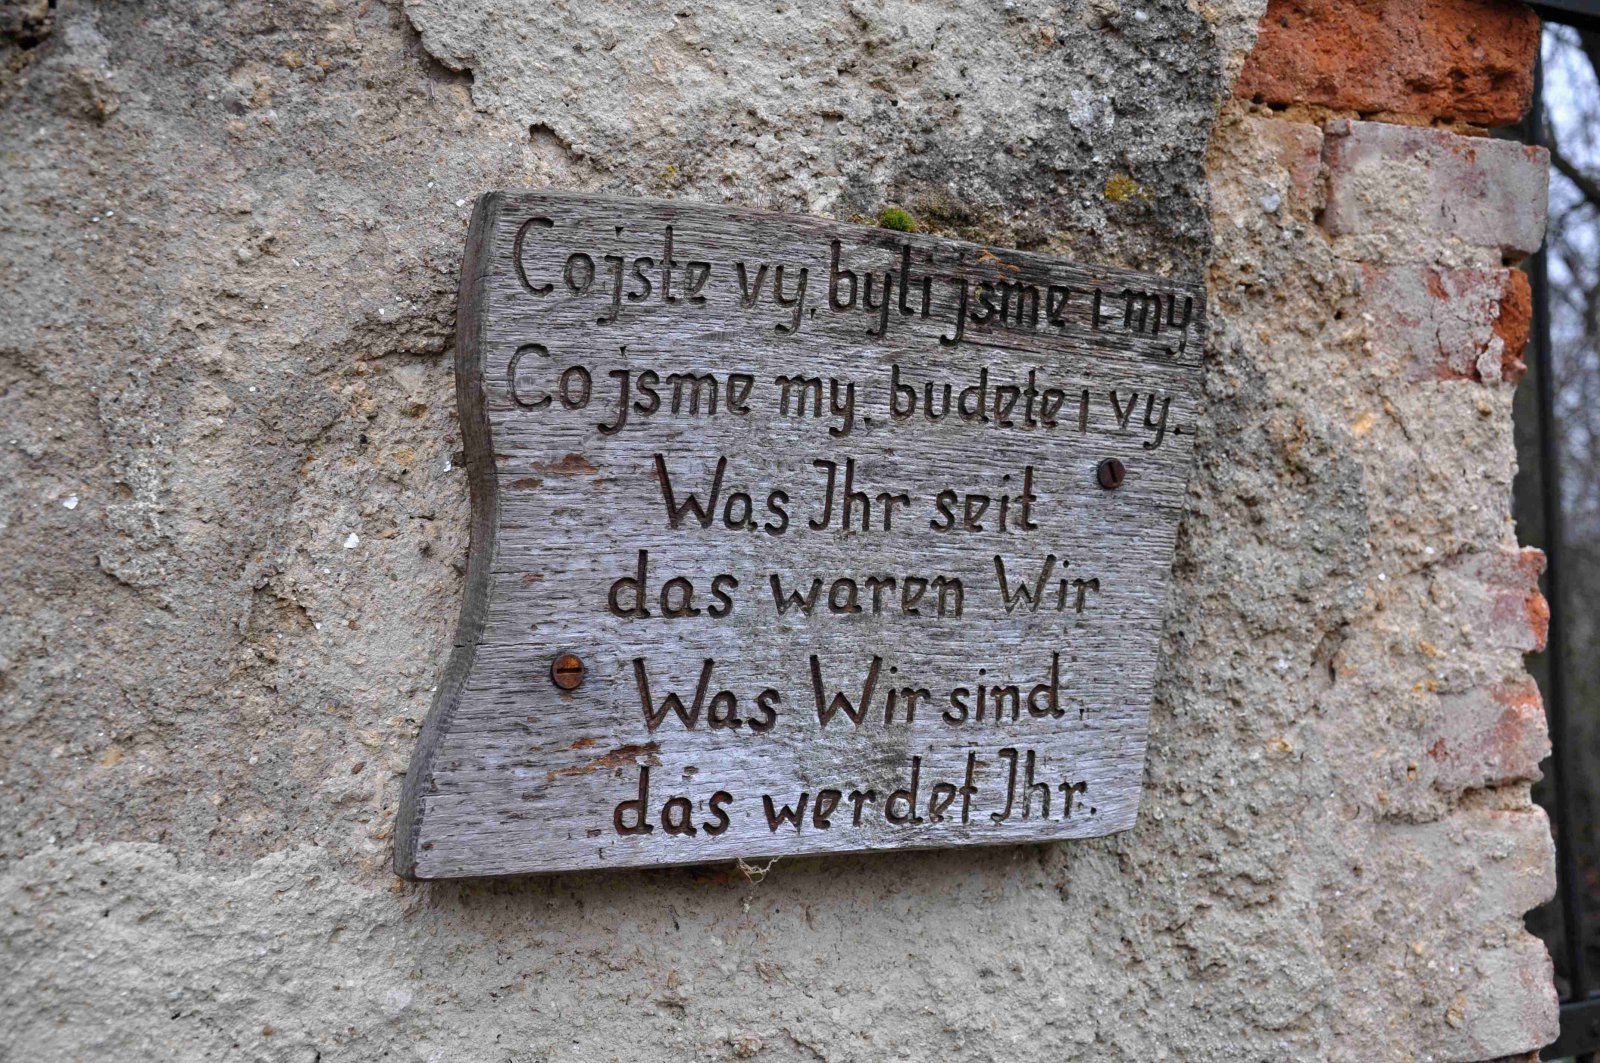 Co jste vy, byli jsme i my.
Co jsme my, budete i vy.
Was Ihr seit
das waren Wir
Was Wir sind,
das werdet Ihr.